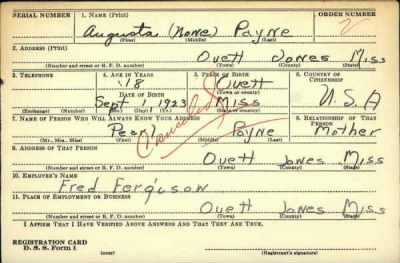 SERIAL NUMBER 1. NAME (Print) ORDER NUMBER
Augusta (None) Payne 2
(First) (Middle) (Last)
2. ADDRESS (Print)
Ovett Jones Miss
(Number and street or R. F. D. number) (Town) (County) (State)
3. TELEPHONE 4. AGE IN YEARS 5. PLACE OF BIRTH 6. COUNTRY OF CITIZENSHIP
18 Ovett
DATE OF BIRTH (Town or county)
Sept 1, 1923 Miss U.S.A
(Exchange) (Number) (Mo.) (Day) (Yr.) (State or country)
7. NAME OF PERSON WHO WILL ALWAYS KNOW YOUR ADDRESS 8. RELATIONSHIP OF THAT PERSON
Pearl Payne Mother
(Mr., Mrs., Miss) (First) (Middle) (Last)
Cancelled
9. ADDRESS OF THAT PERSON
Ovett Jones Miss
(Number and street or R. F. D. number) (Town) (County) (State)
10. EMPLOYER'S NAME
Fred Ferguson
11. PLACE OF EMPLOYMENT OR BUSINESS
Ovett Jones Miss
(Number and street or R. F. D. number) (Town) (County) (State)
I AFFIRM THAT I HAVE VERIFIED ABOVE ANSWERS AND THAT THEY ARE TRUE.
REGISTRATION CARD
D. S. S. Form 1 (over) (Registrant's signature)